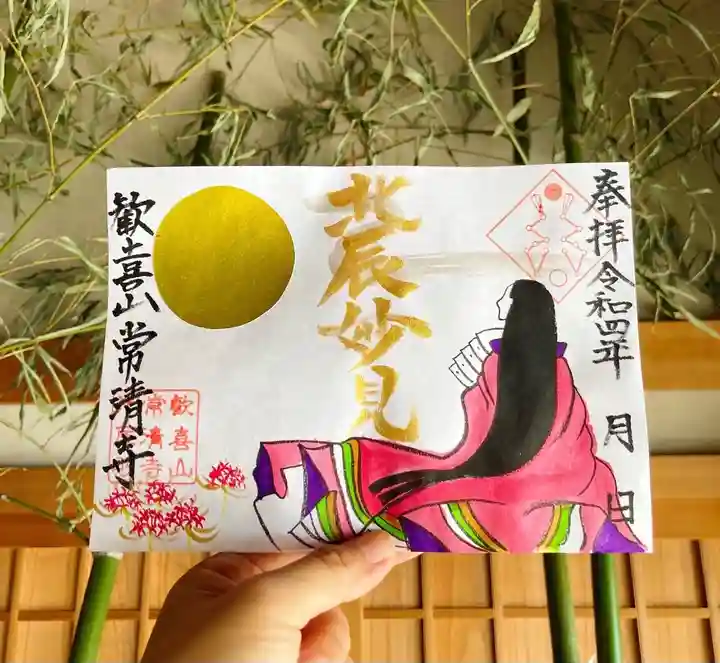 奉拝令和四年 月 日
北辰妙見
歓喜山常清寺
歓喜山
常清寺